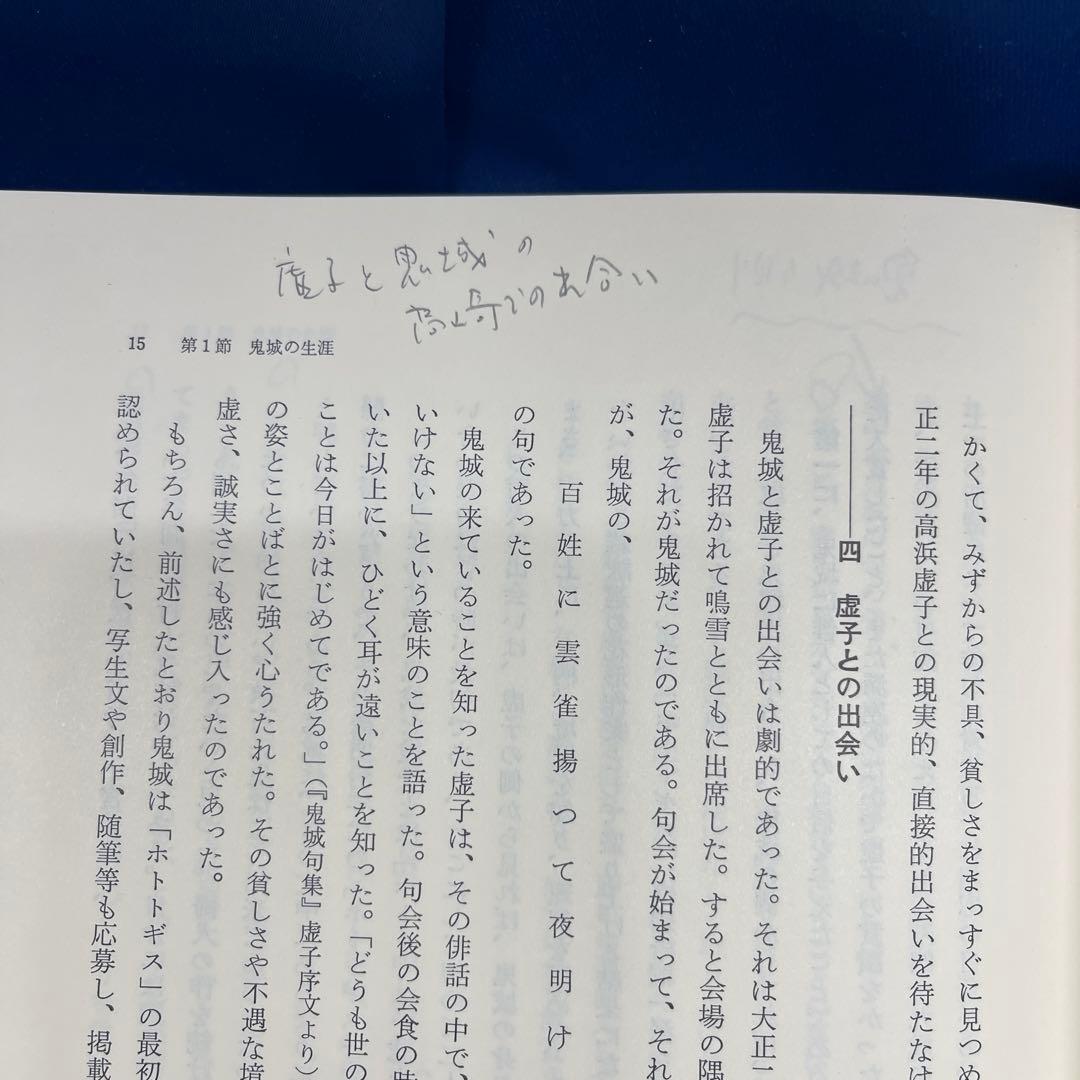 虚子と鬼城の
高崎での出合い
15 第1節 鬼城の生涯
かくて、みずからの不具、貧しさをまっすぐに見つめ
正二年の高浜虚子との現実的、直接的出会いを待たなけ
四 虚子との出会い
鬼城と虚子との出会いは劇的であった。それは大正二
虚子は招かれて鳴雪とともに出席した。すると会場の隅
た。それが鬼城だったのである。句会が始まって、それ
が、鬼城の、
百姓に雲雀揚つて夜明け
の句であった。
鬼城の来ていることを知った虚子は、その俳話の中で、
いけない」という意味のことを語った。句会後の会食の時
いた以上に、ひどく耳が遠いことを知った。「どうも世の
ことは今日がはじめてである。」(『鬼城句集』虚子序文より)
の姿とことばとに強く心うたれた。その貧しさや不遇な境
虚さ、誠実さにも感じ入ったのであった。
もちろん、前述したとおり鬼城は「ホトトギス」の最初
認められていたし、写生文や創作、随筆等も応募し、掲載